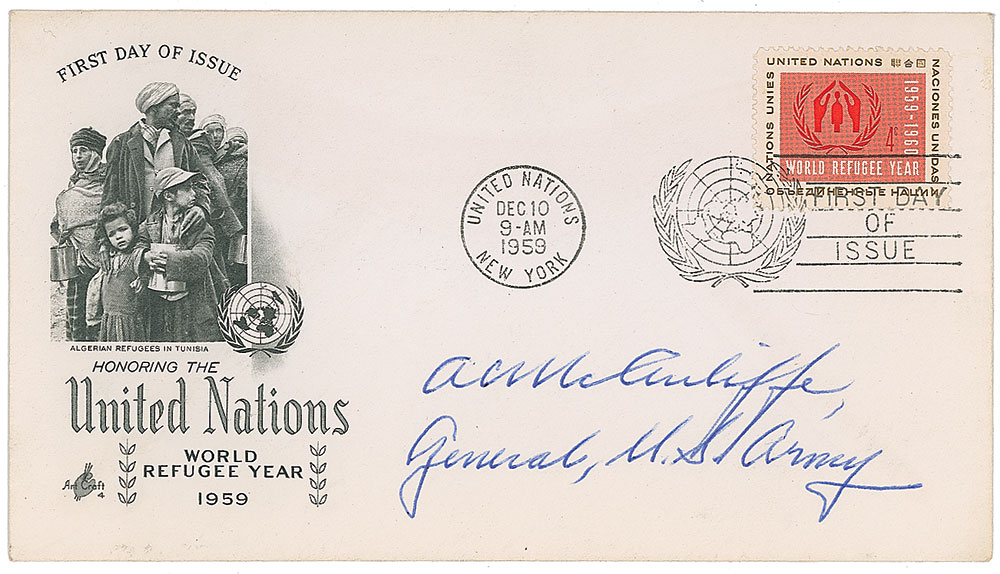 FIRST DAY OF ISSUE
ALGERIAN REFUGEES IN TUNISIA
HONORING THE
United Nations
WORLD
REFUGEE YEAR
1959
Art Craft
4
UNITED NATIONS
DEC 10
9-AM
1959
NEW YORK
UNITED NATIONS 聯合国
NACIONES UNIDAS
NATIONS UNIES
1959-1960
4¢
WORLD REFUGEE YEAR
ОБЪЕДИНЕННЫЕ НАЦИИ
FIRST DAY
OF
ISSUE
A C McAuliffe,
General, U.S. Army